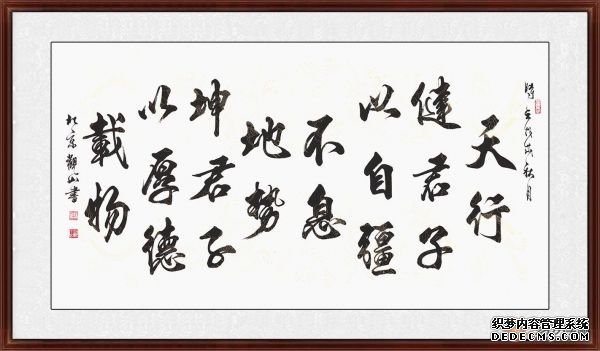 時在戊戌秋月
天行
健君子
以自疆
不息
地勢
坤君子
以厚德
載物
於京觀山書
织梦内容管理系统
DEDECMS.COM